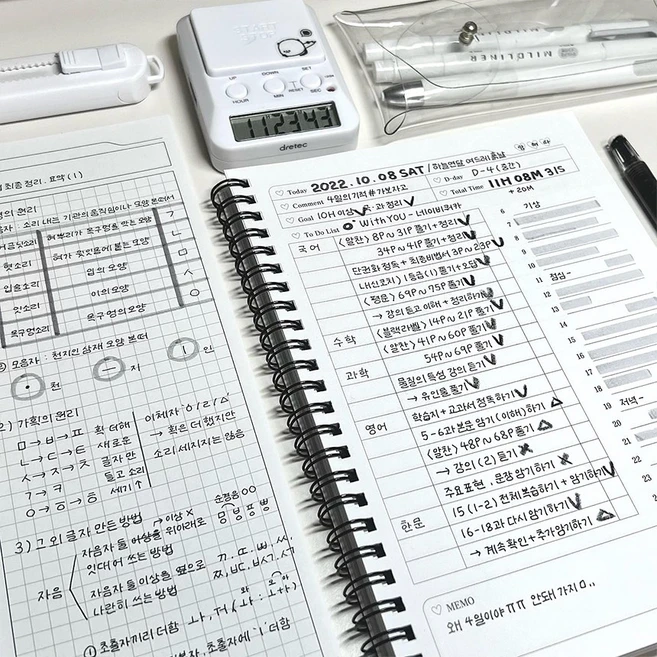 UP
DOWN
SET
HOUR
MIN
RESET
SEC
11 23 43
dretec
MILDLINER
최종 정리. 요약 (1)
소리 내는 기관의 움직임이나 모양 본떠
혀뿌리가 목구멍을 막는 모양
ㄱ
혓소리
혀가 윗잇몸에 붙는 모양
ㄴ
입술소리
입의 모양
ㅁ
잇소리
이의 모양
ㅅ
목구멍소리
목구멍의 모양
ㅇ
모음자 : 천지인 삼재 모양 본떠
· 천
ㅡ 지
ㅣ 인
2) 가획의 원리
ㅁ→ㅂ→ㅍ
ㄴ→ㄷ→ㅌ
ㅅ→ㅈ→ㅊ
ㄱ→ㅋ
ㅇ→ㆆ→ㅎ
획 더해
새로운
글자 만
들고 소리
세기↑
이체자
→ 획은 더 했지만
소리 세지지는 않음
3) 그 외 글자 만든 방법
자음
자음자 둘 이상을 위아래로
잇대어 쓰는 방법
이상 X
순경음
자음자 둘 이상을 옆으로
나란히 쓰는 방법
① 초출자끼리 더함
Today 2022.10.08 SAT / 하늘연달 여드레
Comment 4일의 기적 #가보자고
D-day D-4 (중간)
Goal 10H 이상
Total Time 11H 08M 31S
+ 20M
To Do List
WithYOU - 네이버카페
국어
<알찬> 8P ~ 31P 풀기 + 정리
34P ~ 41P 풀기 + 정리
단권화 정독 + 최종비법서 3P ~ 23P
내신코치 1등급 (1) 풀기 + 오답
69P ~ 75P 풀기
→ 강의 듣고 이해 + 정리하기
수학
<블랙라벨> 14P ~ 21P 풀기
<알찬> 41P ~ 60P 풀기
54P ~ 69P 풀기
과학
물질의 특성 강의 듣기
→ 유인물 풀기
학습지 + 교과서 정독하기
영어
5-6과 본문 암기 (이해) 하기
<알찬> 48P ~ 68P 풀기
→ 강의 (2) 듣기
주요표현, 문장 암기하기
한문
15 (1-2) 전체 복습하기 + 암기하기
16-18과 다시 암기하기
→ 계속 확인 + 추가암기하기
6 기상
7
8
9
10
11 점심-
12
13
14
15
16
17
18
19 저녁-
20
21
22
23
MEMO
왜 4일이야 ㅠㅠ 안돼 가지마..